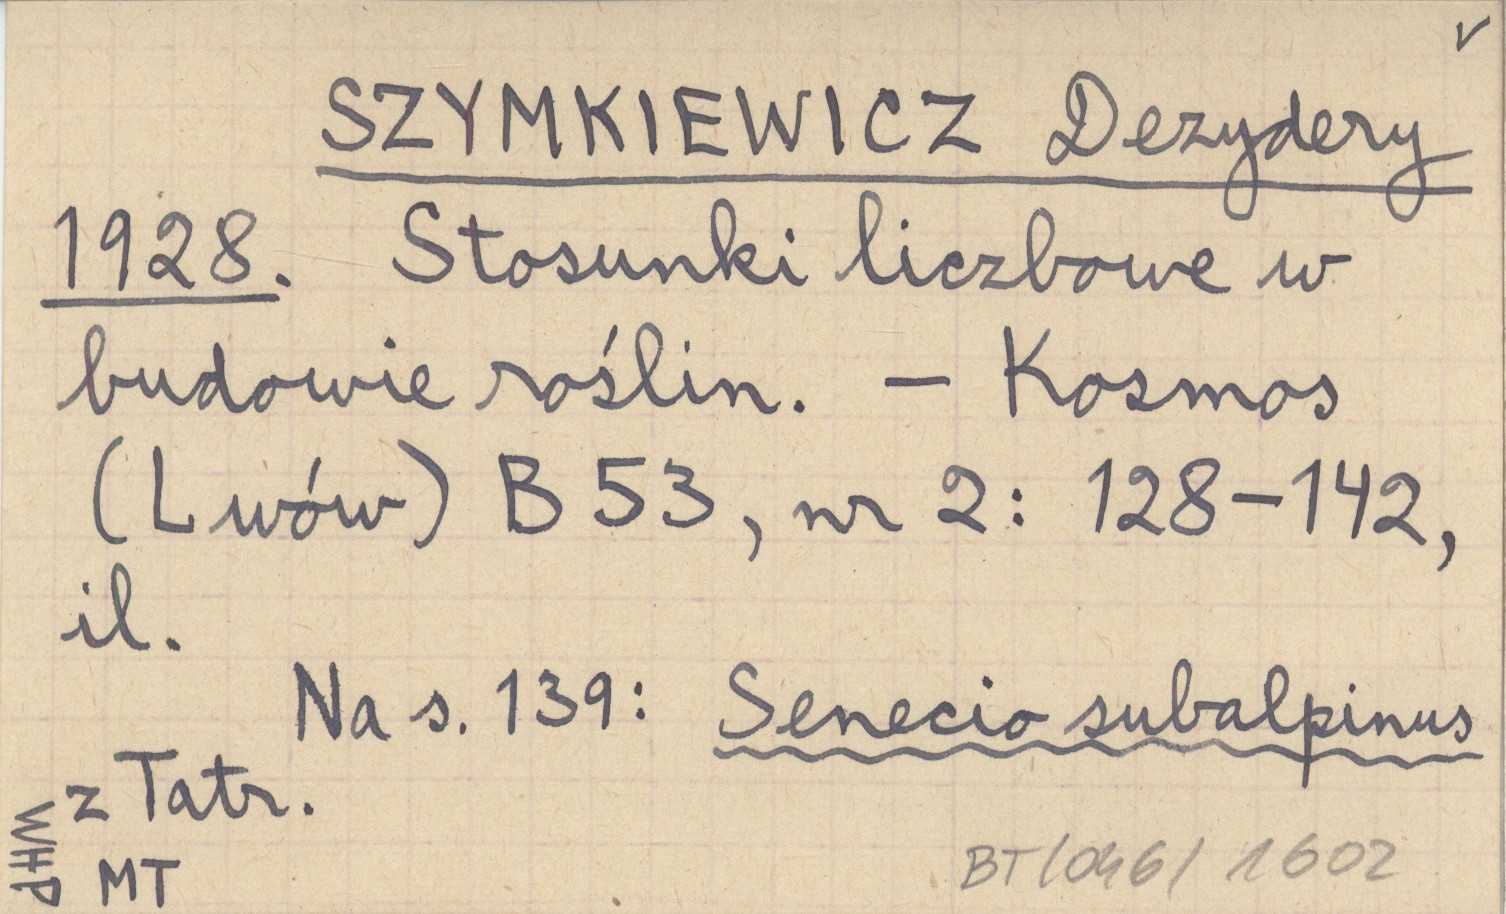 ✓
SZYMKIEWICZ Dezydery
1928. Stosunki liczbowe w
budowie roślin. – Kosmos
(Lwów) B 53, nr 2: 128–142,
il.
Na s. 139: Senecio subalpinus
z Tatr.
WHP
MT
BT/046/1602